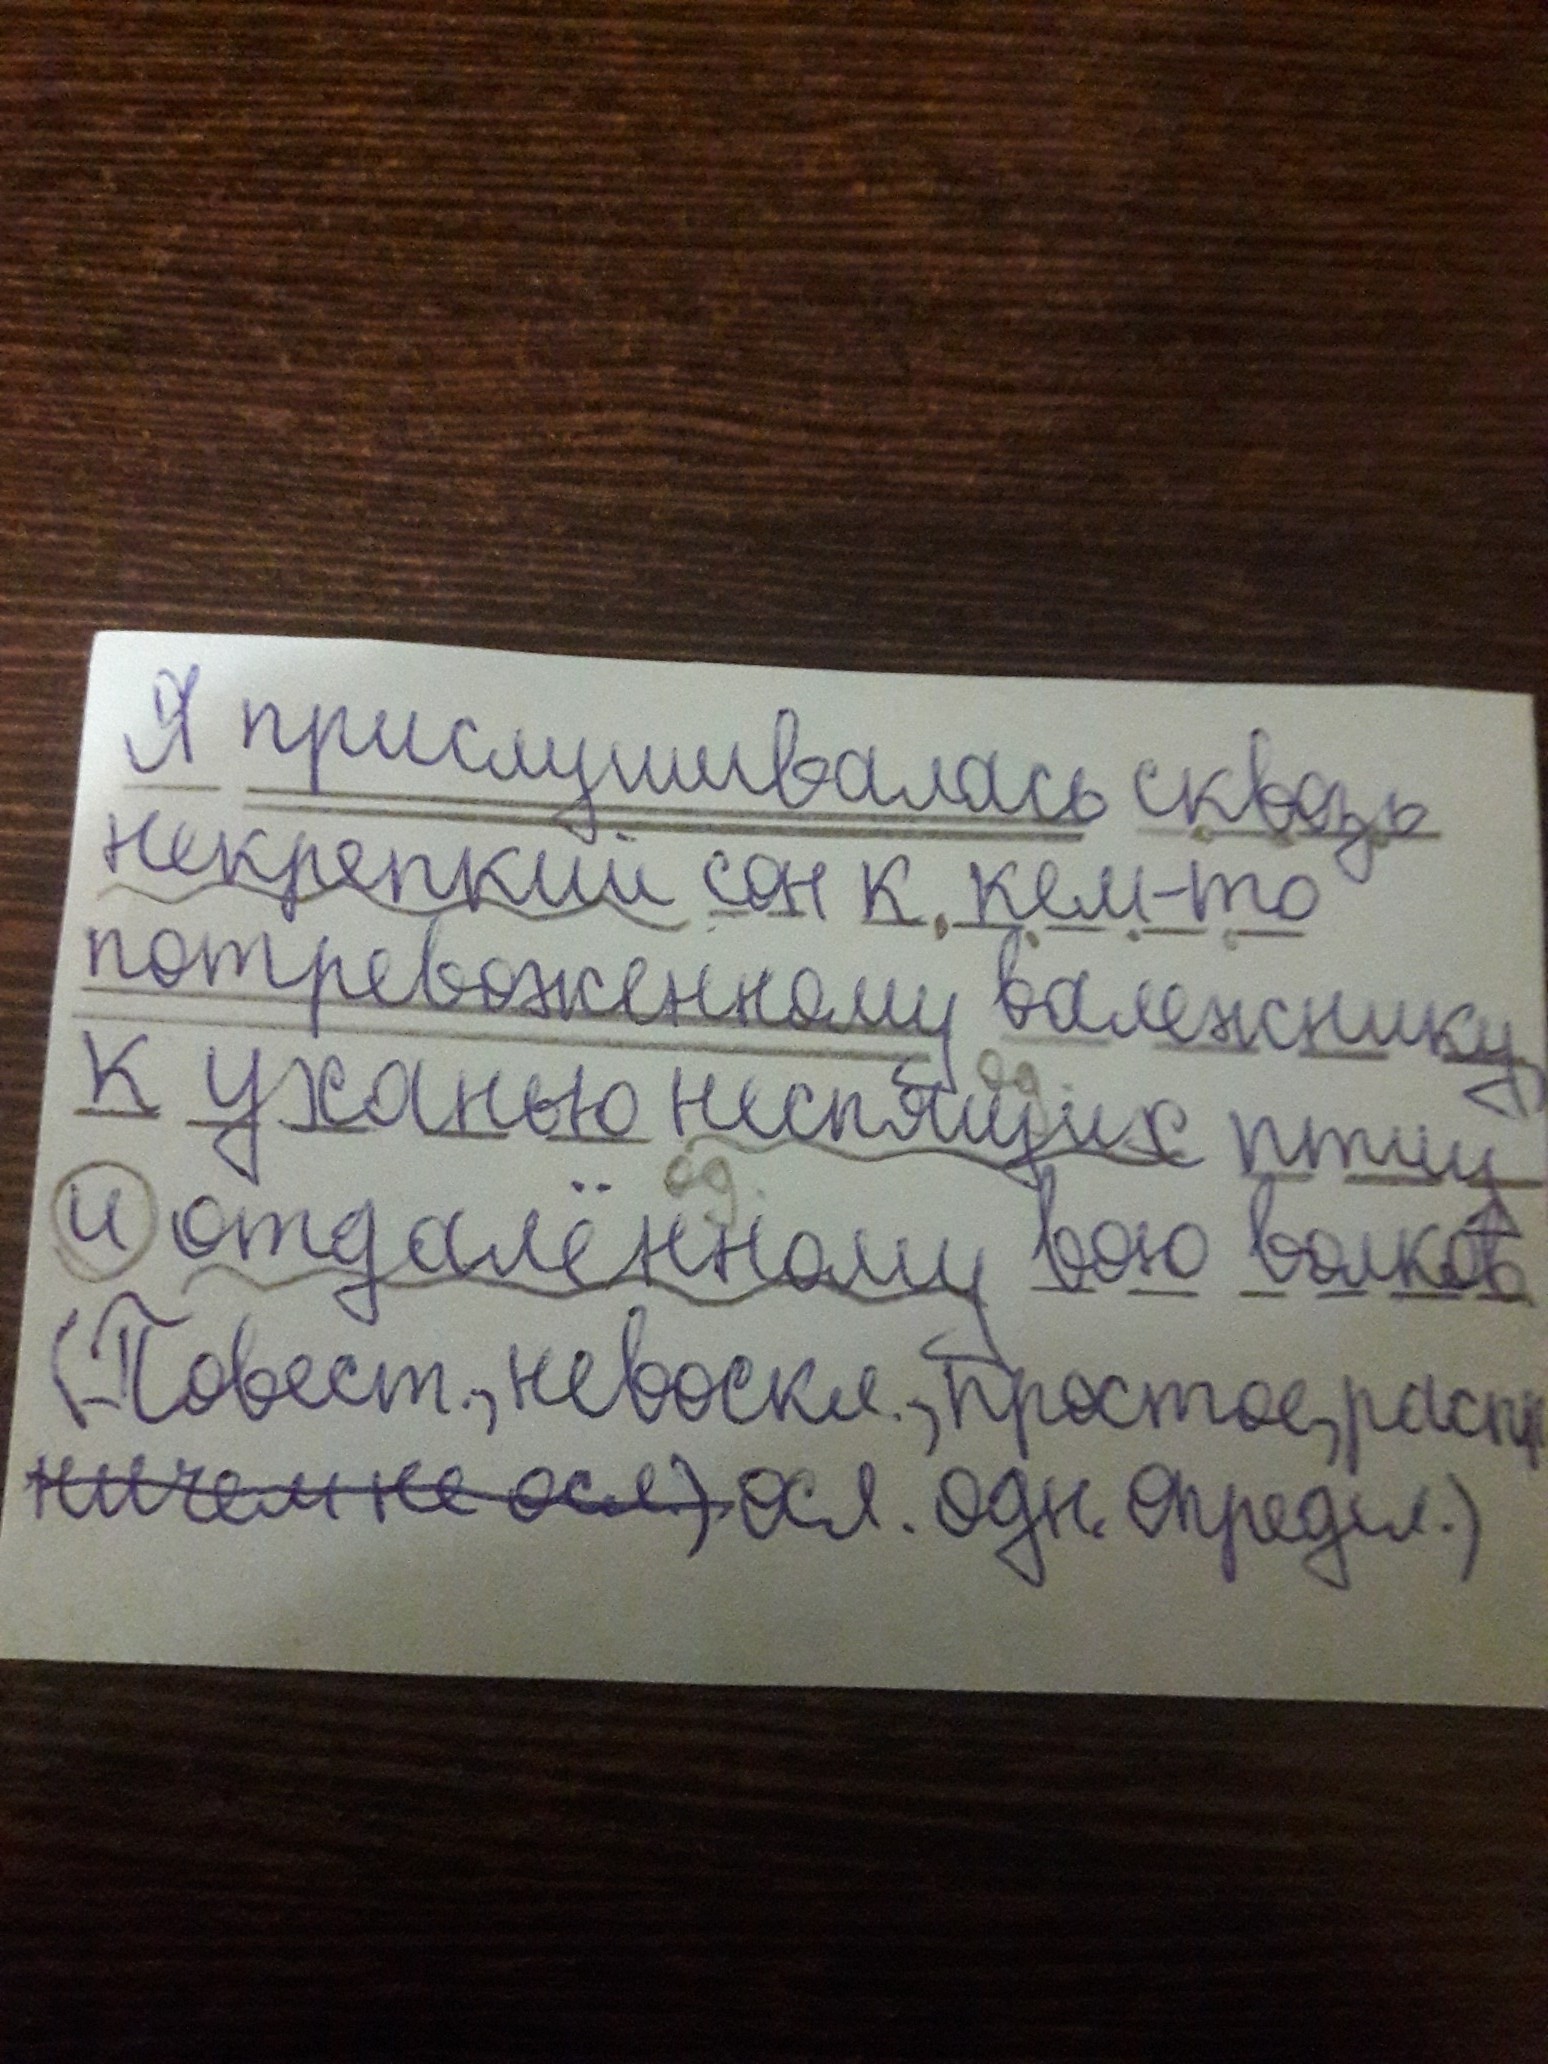 Я прислушивалась сквозь
некрепкий сон к кем-то
потревоженному валежнику,
к уханью неспящих птиц
и отдалённому вою волков
(Повест., невоскл., простое, распр
ничем не осл.) осл. одн. определ.)
од.
од.